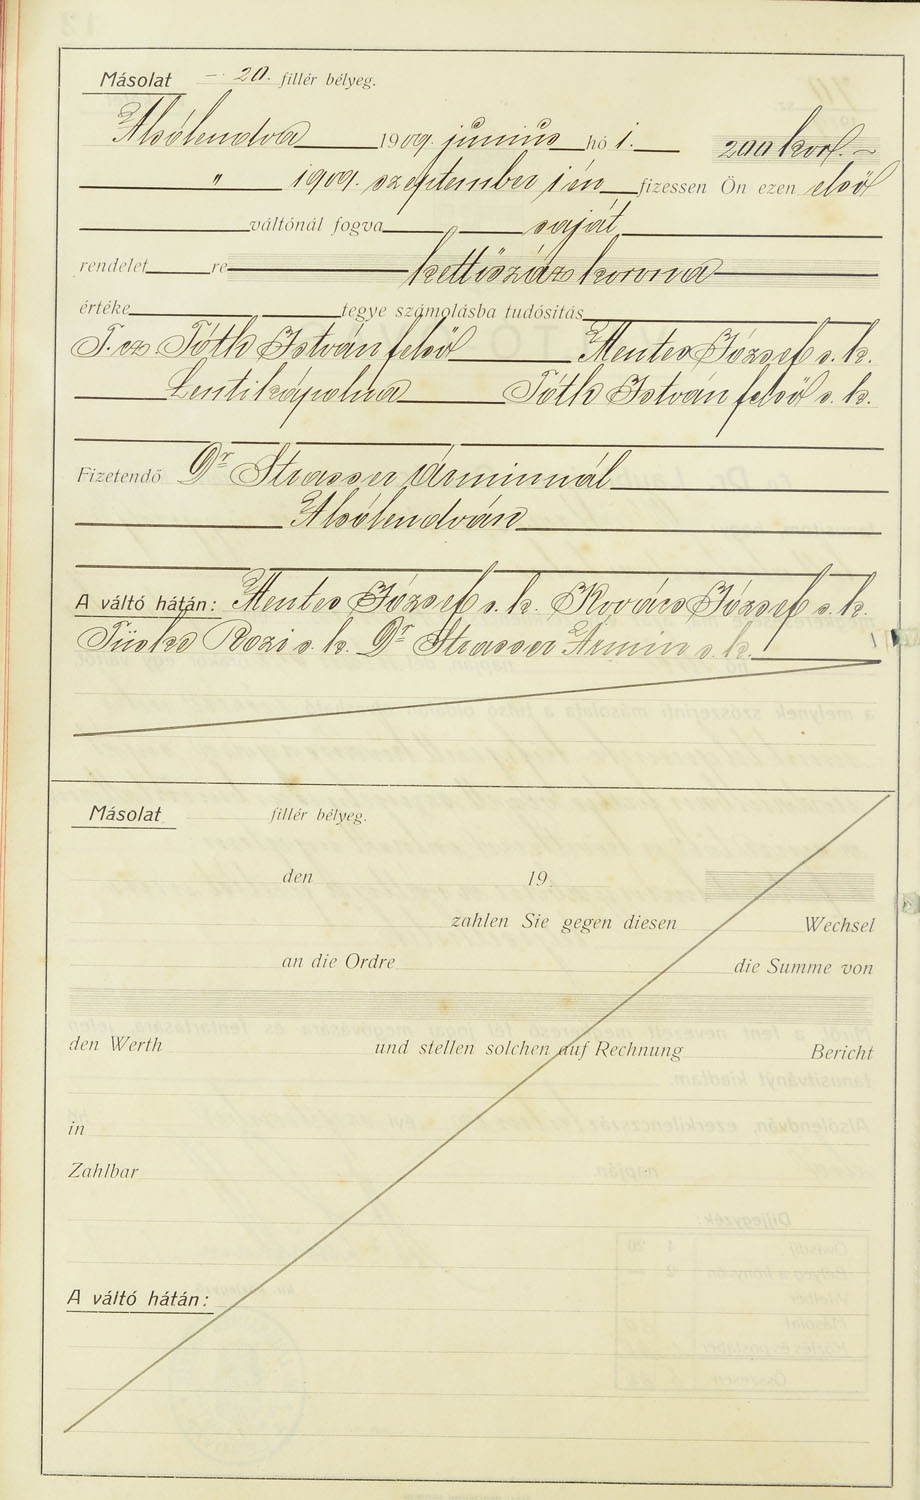 Másolat – 20. fillér bélyeg.
Alsólendva 1909. június hó 1. 200 kor. –
" 1909. szeptember 1 én fizessen Ön ezen első
váltónál fogva saját
rendelet re kettőszáz korona
értéke tegye számolásba tudósitás
T. cz. Tóth István felső Mentes József s. k.
Lentikápolna Tóth István felső s. k.
Fizetendő Dr Strasser Árminnál
Alsólendván
A váltó hátán: Mentes József s. k. Kovács József s. k.
Tüske Rozi s. k. Dr Strasser Ármin s. k.
Másolat fillér bélyeg.
den 19
zahlen Sie gegen diesen Wechsel
an die Ordre die Summe von
den Werth und stellen solchen auf Rechnung Bericht
in
Zahlbar
A váltó hátán: